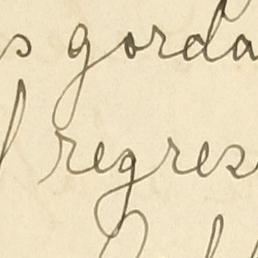 s gorda
l regres